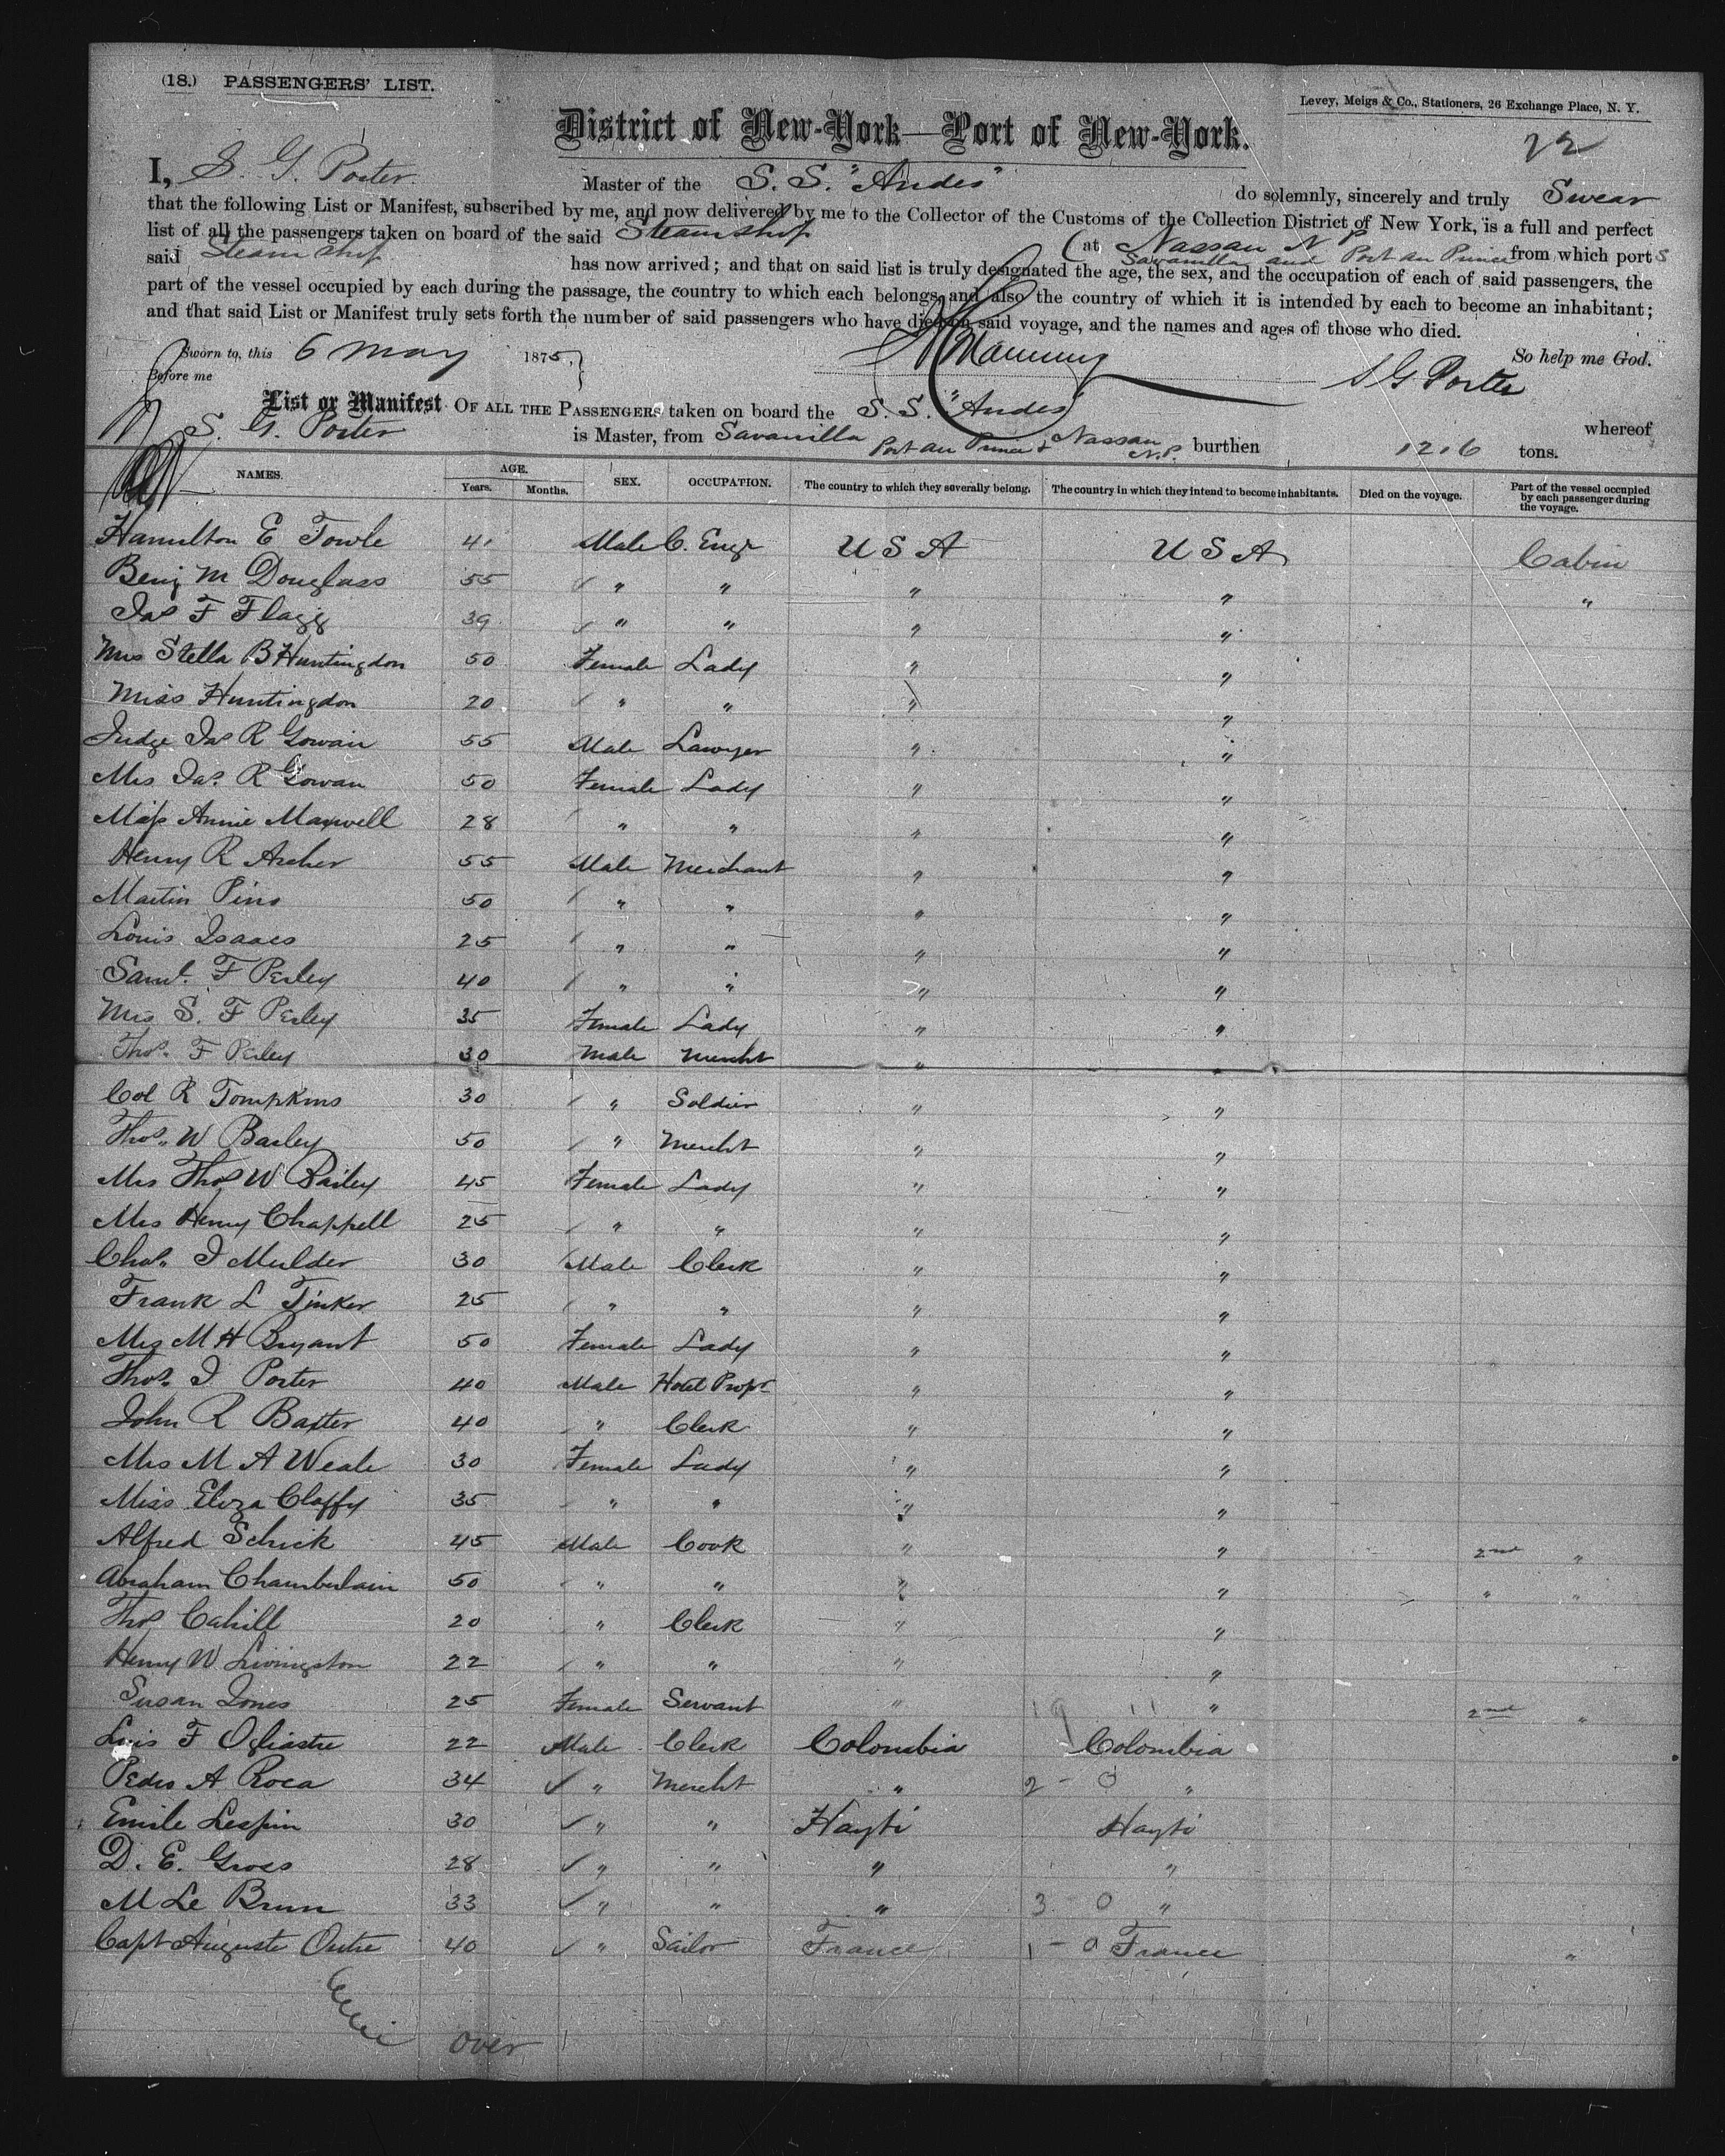 (18.) PASSENGERS' LIST.
Levey, Meigs & Co., Stationers, 26 Exchange Place, N. Y.
District of New-York—Port of New-York.
22
I, S. G. Porter Master of the S. S. "Andes" do solemnly, sincerely and truly Swear
that the following List or Manifest, subscribed by me, and now delivered by me to the Collector of the Customs of the Collection District of New York, is a full and perfect
list of all the passengers taken on board of the said Steamship at Nassau N P Savanilla and Port au Prince from which ports
said Steamship has now arrived; and that on said list is truly designated the age, the sex, and the occupation of each of said passengers, the
part of the vessel occupied by each during the passage, the country to which each belongs, and also the country of which it is intended by each to become an inhabitant;
and that said List or Manifest truly sets forth the number of said passengers who have died on said voyage, and the names and ages of those who died.
Sworn to, this 6 May 1875, So help me God.
Before me S G Porter
List or Manifest OF ALL THE PASSENGERS taken on board the S. S. "Andes" whereof
S. G. Porter is Master, from Savanilla Port au Prince & Nassau N.P. burthen 1216 tons.
NAMES. AGE. Years. Months. SEX. OCCUPATION. The country to which they severally belong. The country in which they intend to become inhabitants. Died on the voyage. Part of the vessel occupied by each passenger during the voyage.
Hamilton E Towle 41 Male C. Engr U S A U S A Cabin
Benj M Douglass 55 " " " " "
Jas F Flagg 39 " " " "
Mrs Stella B Huntingdon 50 Female Lady " "
Miss Huntingdon 20 " " " "
Judge Jas R Gowan 55 Male Lawyer " "
Mrs Jas. R Gowan 50 Female Lady " "
Miss Annie Maxwell 28 " " " "
Henry R Archer 55 Male Merchant " "
Martin Pins 50 " " " "
Louis Isaacs 25 " " " "
Saml. F Perley 40 " " " "
Mrs S. F Perley 35 Female Lady " "
Thos. F Perley 30 Male Mercht " "
Col R Tompkins 30 " Soldier " "
Thos. W Bailey 50 " Mercht " "
Mrs Thos W Bailey 45 Female Lady " "
Mrs Henry Chappell 25 " " " "
Chas. I Mulder 30 Male Clerk " "
Frank L Tinker 25 " " " "
Mrs M H Bryant 50 Female Lady " "
Thos. J Porter 40 Male Hotel Propr " "
John R Baxter 40 " Clerk " "
Mrs M A Weale 30 Female Lady " "
Miss Eliza Claffy 35 " " " "
Alfred Schick 45 Male Cook " " 2nd "
Abraham Chamberlain 50 " " " " " "
Thos Cahill 20 " Clerk " "
Henry W Livingston 22 " " " "
Susan Jones 25 Female Servant " 19 11 " 2nd "
Luis F Ogliastre 22 Male Clerk Colombia Colombia
Pedro A Roca 34 " Mercht " 2 - 0 "
Emile Lespin 30 " " Hayti Hayti
D. E. Gross 28 " " " "
M Le Brun 33 " " " 3 0 "
Capt Auguste Outre 40 " Sailor France 1 - 0 France "
over